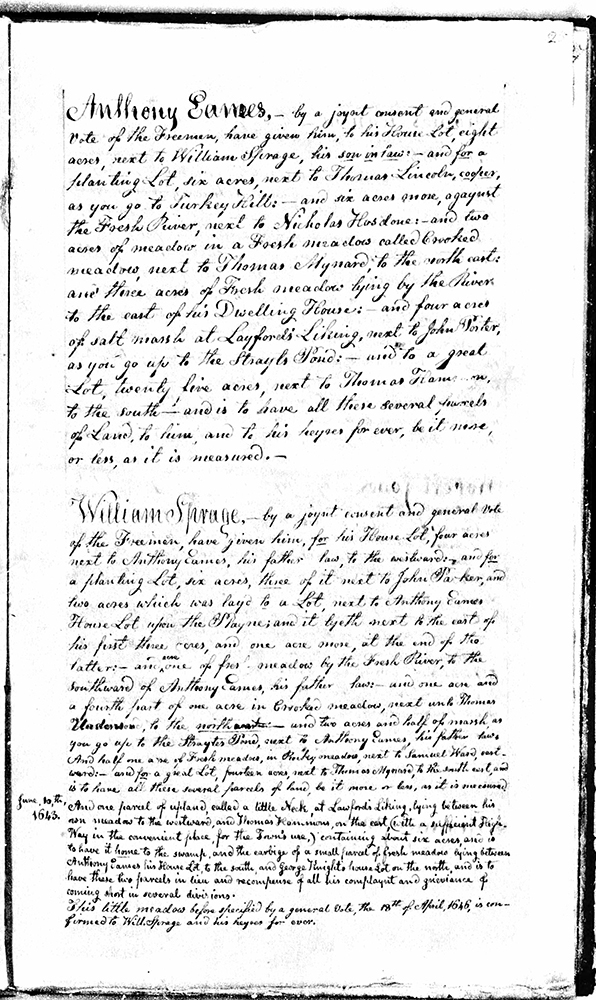 2
Anthony Eames, - by a joynt consent and general
Vote of the Freemen, have given him, to his House Lot, eight
acres, next to William Sprage, his son in law: - and for a
planting Lot, six acres, next to Thomas Lincoln, cooper,
as you go to Turkey Hill: - and six acres more, agaynst
the Fresh River, next to Nicholas Hosdone: - and two
acres of meadow in a Fresh meadow called Crooked
meadow, next to Thomas Mynard to the north east:
and three acres of Fresh meadow lying by the River
to the east of his Dwelling House: - and four acres
of salt marsh at Layford's Liking, next to John Porter,
as you go up to the Strayts Pond: - and to a great
Lot, twenty five acres, next to Thomas
to the south - and is to have all these several parcels
of Land, to him, and to his heyres for ever, be it more,
or less, as it is measured. -
William Sprage, - by a joynt consent and general Vote
of the Freemen, have given him, for his House Lot, four acres
next to Anthony Eames, his father law, to the westward: - and for
a planting Lot, six acres, three of it next to John Parker, and
two acres which was lay'd to a Lot, next to Anthony Eames
House Lot upon the Playne; and it lyeth next to the east of
his first three acres, and one acre more, at the end of the
latter: - and one of fresh meadow by the Fresh River, to the
Southward of Anthony Eames, his father law: - and one acre and
a fourth part of one acre in Crooked meadow, next unto Thomas
to the north - and two acres and half of marsh, as
you go up to the Strayts Pond, next to Anthony Eames, his father law
And half one acre of Fresh meadow, in Rocky meadow, next to Samuel Ward, east-
ward: - and for a great Lot, fourteen acres, next to Thomas Mynard, to the south east, and
is to have all these several parcels of land, be it more or less, as it is measured
June, 10th, 1643.
And one parcel of upland, called a little Neck, at Lawford's Liking, lying between his
own meadow to the westward, and Thomas Hammons, on the east, (with a sufficient High
Way in the convenient place, for the Town's use,) containing about six acres, and is
to have it home to the swamp, and the earbige of a small parcel of Fresh meadow lying between
Anthony Eames his House Lot, to the south, and George Knight's house Lot on the north, and is to
have these two parcels in lieu and recompense of all his complaynt and grievance of
coming short in several divisions.
This little meadow before specified by a general Vote, the 18th of April, 1646, is con-
firmed to Will: Sprage and his heyres for ever.